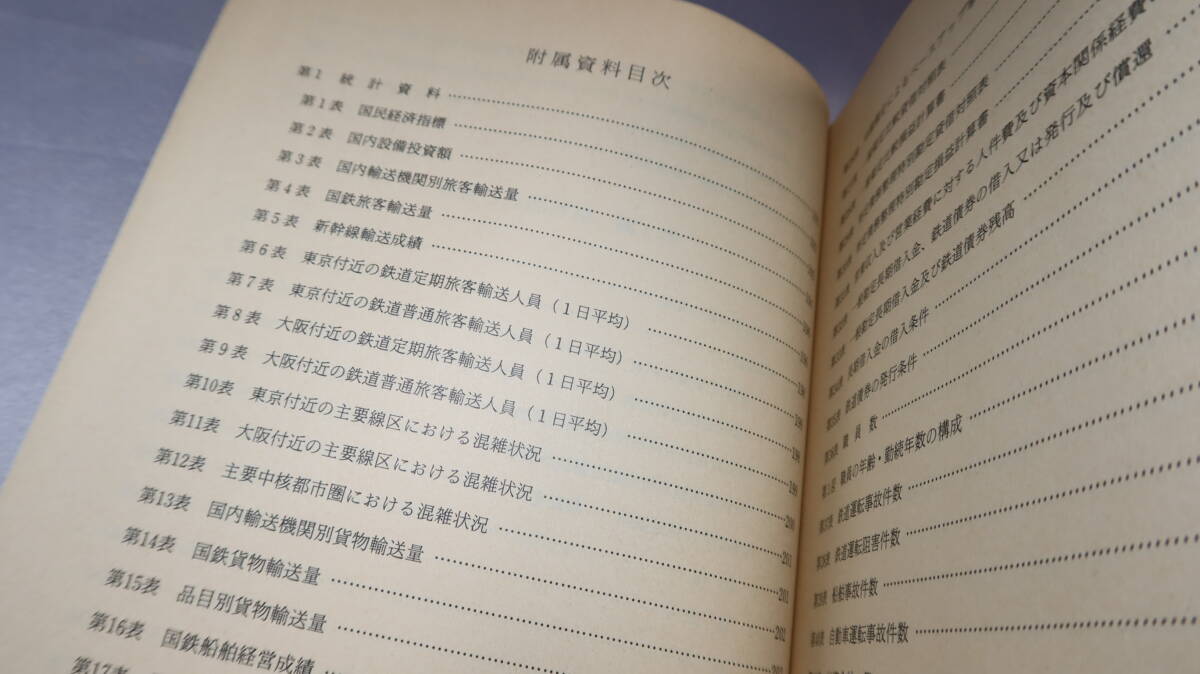 附属資料目次
第1 統計資料
第1表 国民経済指標
第2表 国内設備投資額
第3表 国内輸送機関別旅客輸送量
第4表 国鉄旅客輸送量
第5表 新幹線輸送成績
第6表 東京付近の鉄道定期旅客輸送人員(1日平均)
第7表 東京付近の鉄道普通旅客輸送人員(1日平均)
第8表 大阪付近の鉄道定期旅客輸送人員(1日平均)
第9表 大阪付近の鉄道普通旅客輸送人員(1日平均)
第10表 東京付近の主要線区における混雑状況
第11表 大阪付近の主要線区における混雑状況
第12表 主要中核都市圏における混雑状況
第13表 国内輸送機関別貨物輸送量 201
第14表 国鉄貨物輸送量 201
第15表 品目別貨物輸送量
第16表 国鉄船舶経営成績
第17表
特定債務整理特別勘定貸借対照表
特定債務整理特別勘定損益計算書
営業収入及び営業経費に対する人件費及び資本関係経費
一般勘定長期借入金、鉄道債券の借入又は発行及び償還
一般勘定長期借入金及び鉄道債券残高
長期借入金の借入条件
鉄道債券の発行条件
職員数
職員の年齢・勤続年数の構成
鉄道運転事故件数
鉄道運転阻害件数
船舶事故件数
自動車運転事故件数